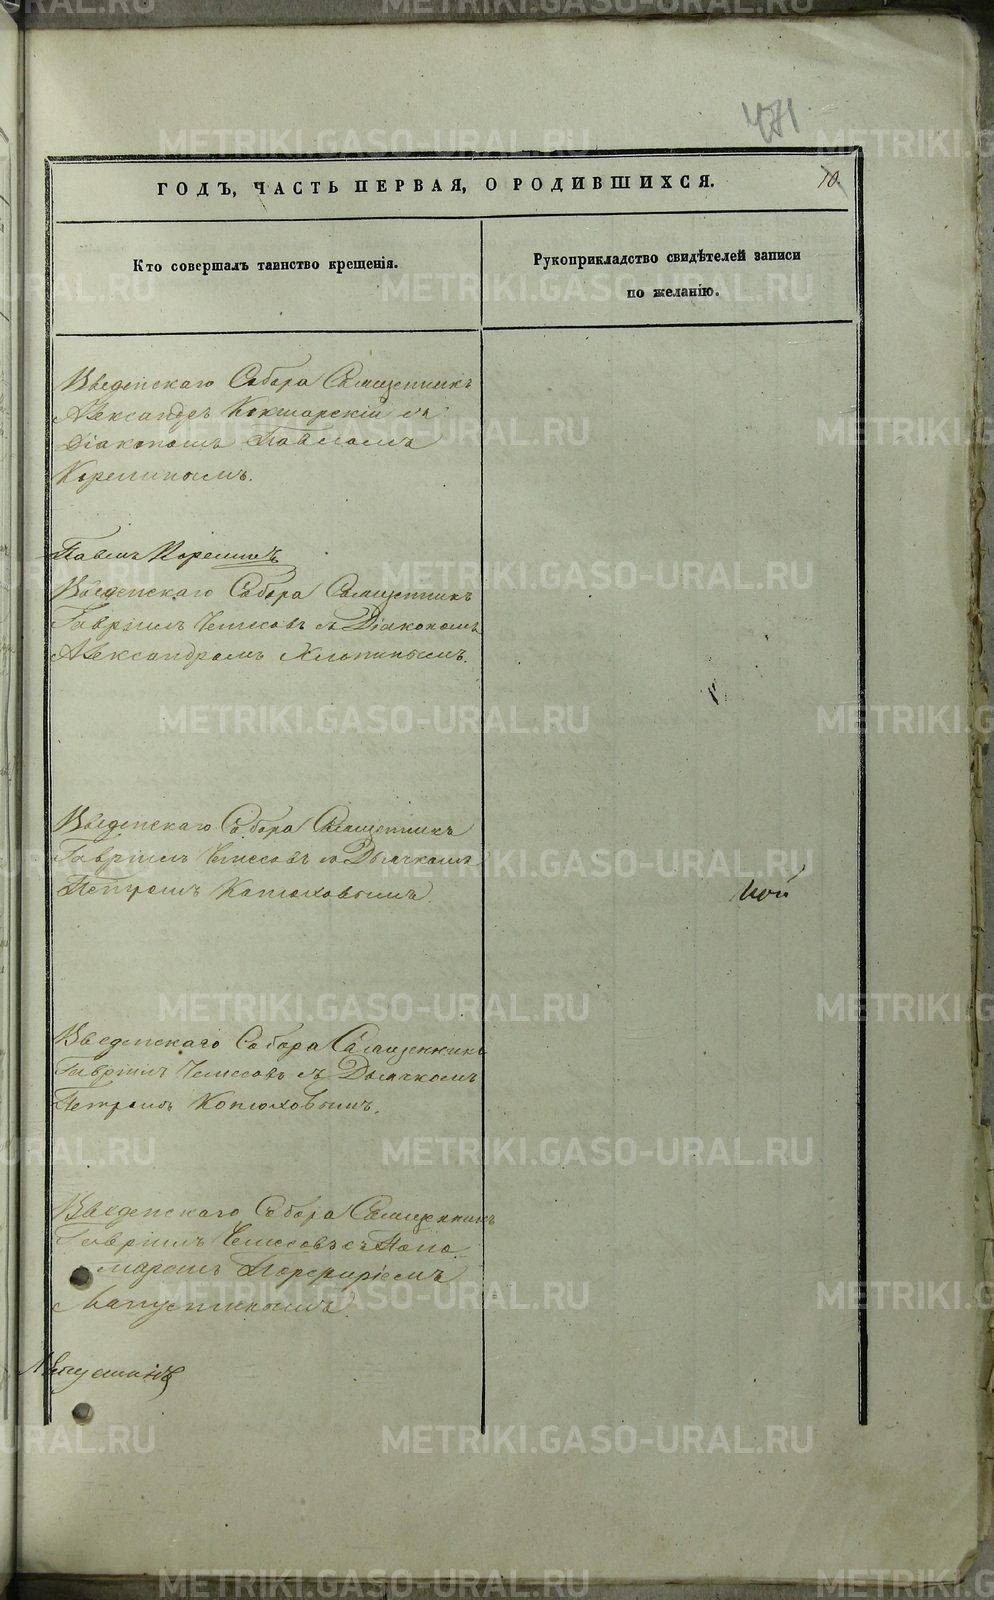 471
ГОДЪ, ЧАСТЬ ПЕРВАЯ, О РОДИВШИХСЯ.
10.
Кто совершалъ таинство крещенія.
Рукоприкладство свидѣтелей записи
по желанію.
Введенскаго Собора Священникъ
Александръ Кокшарскій съ
Діакономъ Павломъ
Корелинымъ.
Павелъ Корелинъ
Введенскаго Собора Священникъ
Гавріилъ Чемесовъ съ Діакономъ
Александромъ Хлынинымъ.
Введенскаго Собора Священникъ
Гавріилъ Чемесовъ съ Дьячкомъ
Петромъ Катюховымъ.
Введенскаго Собора Священникъ
Гавріилъ Чемесовъ съ Дьячкомъ
Петромъ Котюховымъ.
Введенскаго Собора Священникъ
Гавріилъ Чемесовъ съ Поно-
маремъ Порфиріемъ
Лапустинымъ.
METRIKI.GASO-URAL.RU